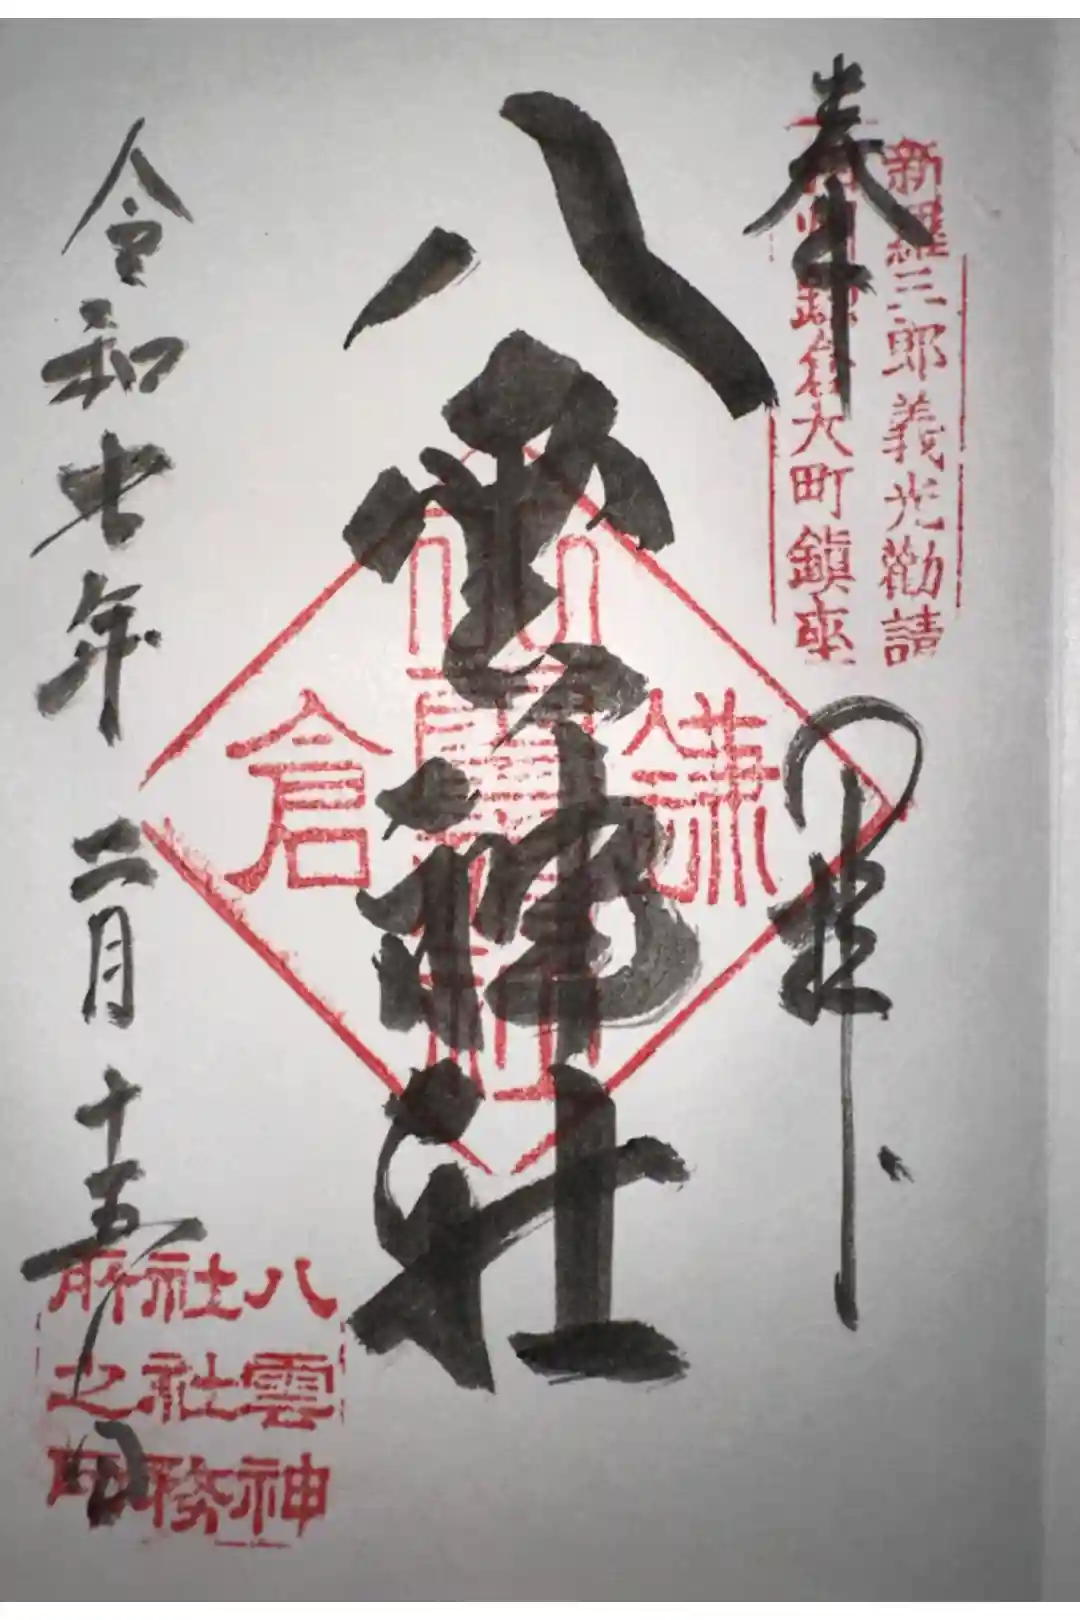 新羅三郎義光勸請
相州鎌倉大町鎮座
奉拝
八雲神社
鎌倉
令和七年二月十五日
八雲神
社社務
所之印